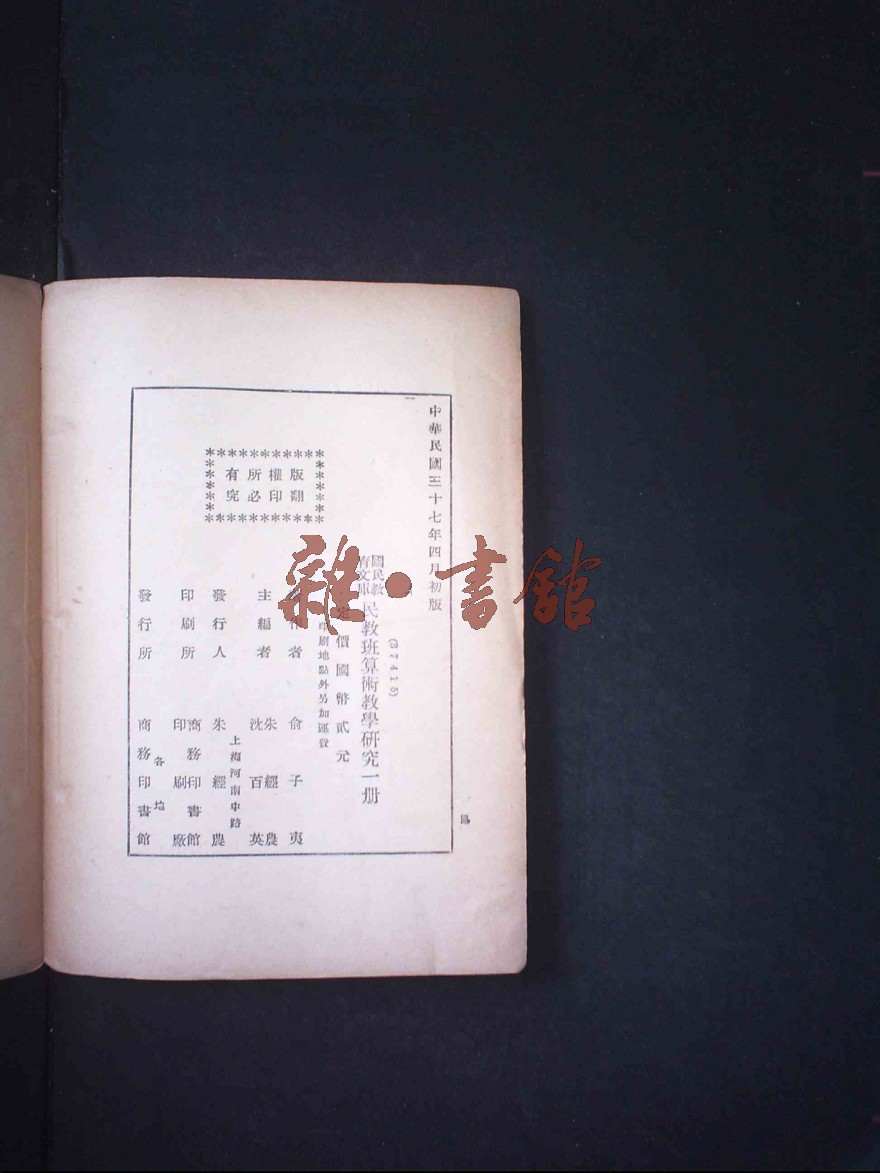 中華民國三十七年四月初版
(37415)
國民教育文庫
民教班算術教學研究一册
定價國幣貳元
印刷地點外另加運費
版權所有
翻印必究
者 俞子夷
主編者 朱經農
沈百英
發行人 朱經農
上海河南中路
印刷所 商務印書館
印刷廠
發行所 商務印書館
各地
雜·書館